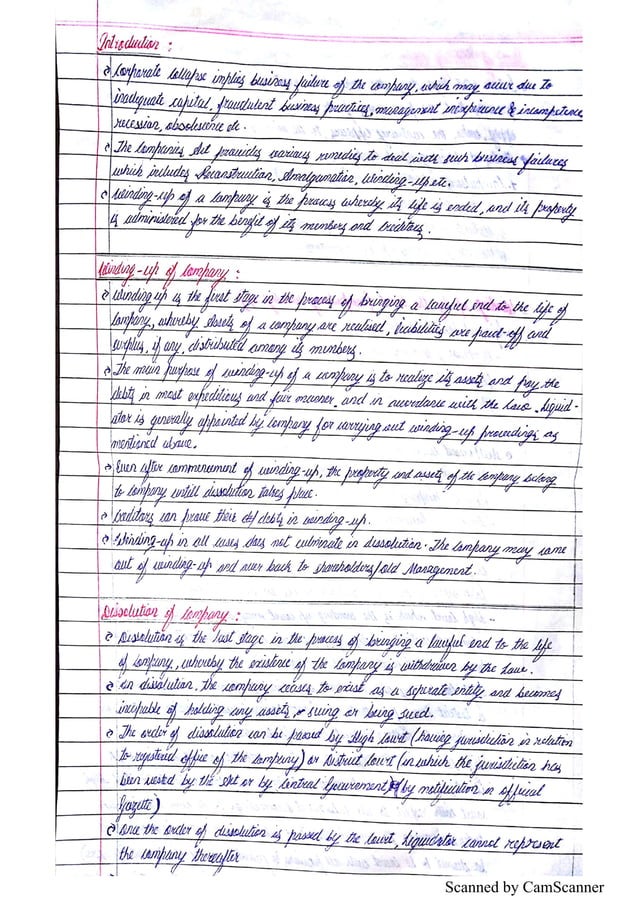 Introduction :
Corporate collapse implies business failure of the company, which may occur due to
inadequate capital, fraudulent business practices, management inexperience & incompetence,
recession, obsolescence etc.
The Companies Act provides various remedies to deal with such business failures
which includes Reconstruction, Amalgamation, Winding-up etc.
Winding-up of a company is the process whereby its life is ended, and its property
is administered for the benefit of its members and creditors.
Winding-up of Company :
Winding up is the first stage in the process of bringing a lawful end to the life of
company, whereby assets of a company are realised, liabilities are paid-off and
surplus, if any, distributed among its members.
The main purpose of winding-up of a company is to realize its assets and pay the
debts in most expeditious and fair manner, and in accordance with the law. Liquid-
ator is generally appointed by company for carrying out winding-up proceedings as
mentioned above.
Even after commencement of winding-up, the property and assets of the company belong
to company untill dissolution takes place.
Creditors can prove their debts in winding-up.
Winding-up in all cases does not culminate in dissolution. The company may come
out of winding-up and over back to shareholders/old Management.
Dissolution of Company :
Dissolution is the last stage in the process of bringing a lawful end to the life
of company, whereby the existence of the company is withdrawn by the law.
On dissolution, the company ceases to exist as a separate entity and becomes
incapable of holding any assets, or suing or being sued.
The order of dissolution can be passed by High Court (having jurisdiction in relation
to registered office of the company) or District Court (in which the jurisdiction has
been vested by the Act or by Central Government (by notification in official
Gazette)
Once the order of dissolution is passed by the court, Liquidator cannot represent
the company thereafter
Scanned by CamScanner